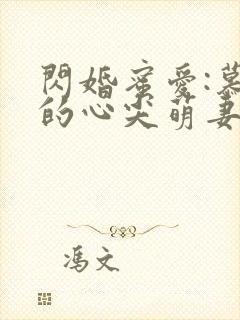 閃婚蜜愛:慕
的心尖萌妻
馮文